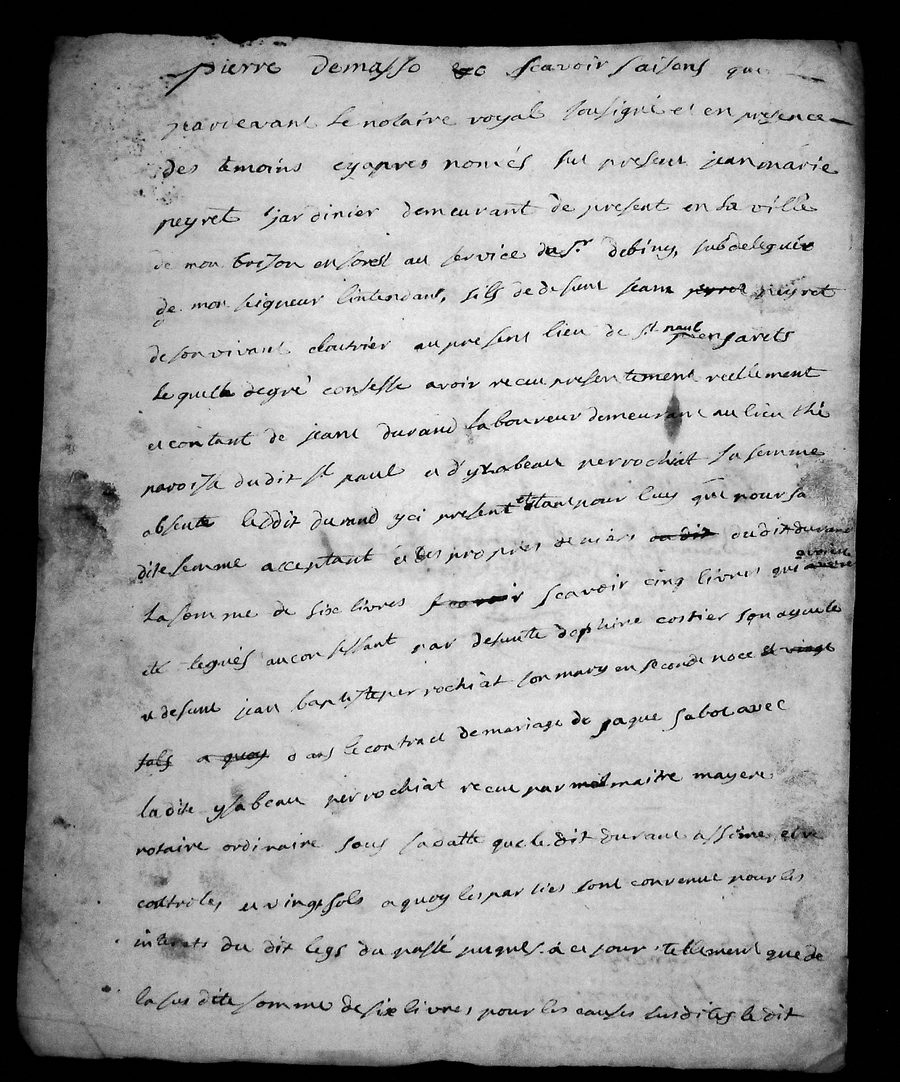 pierre demasso &c scavoir faisons que
pardevant le notaire royal sousigné et en presence
des temoins cyapres només fut present jean marie
peyret jardinier demeurant de present en la ville
de mon brison en forest au service du sr. debiny, subdelegué
de mon seigneur l'intendant, fils de defunt jean peyret
de son vivant cloutrier au present lieu de st. paul en jarets
lequel de gré confesse avoir receu presentement reellement
et contant de jean durand laboureur demeurant au lieu
paroisse dudit st paul et d'ysabeau perrochiat sa femme
absente ledit durand yci present et tant pour luy que pour sa
dite femme acceptant et des propres deniers dudit durand
la somme de six livres scavoir cinq livres qui avoient
eté legués au confessant par defunte dophine costier son ayeule
et defunt jean baptiste perrochiat son mary en seconde noce
dans le contract de mariage de jaque sabot avec
la dite ysabeau perrochiat receu par maitre mayere
notaire ordinaire sous sa datte que le dit durant affirme etre
controlé, et vingt sols a quoy les parties sont convenue pour les
interets du dit legs du passé jusques a ce jour tellement que de
la sus dite somme de six livres pour les causes susdites le dit